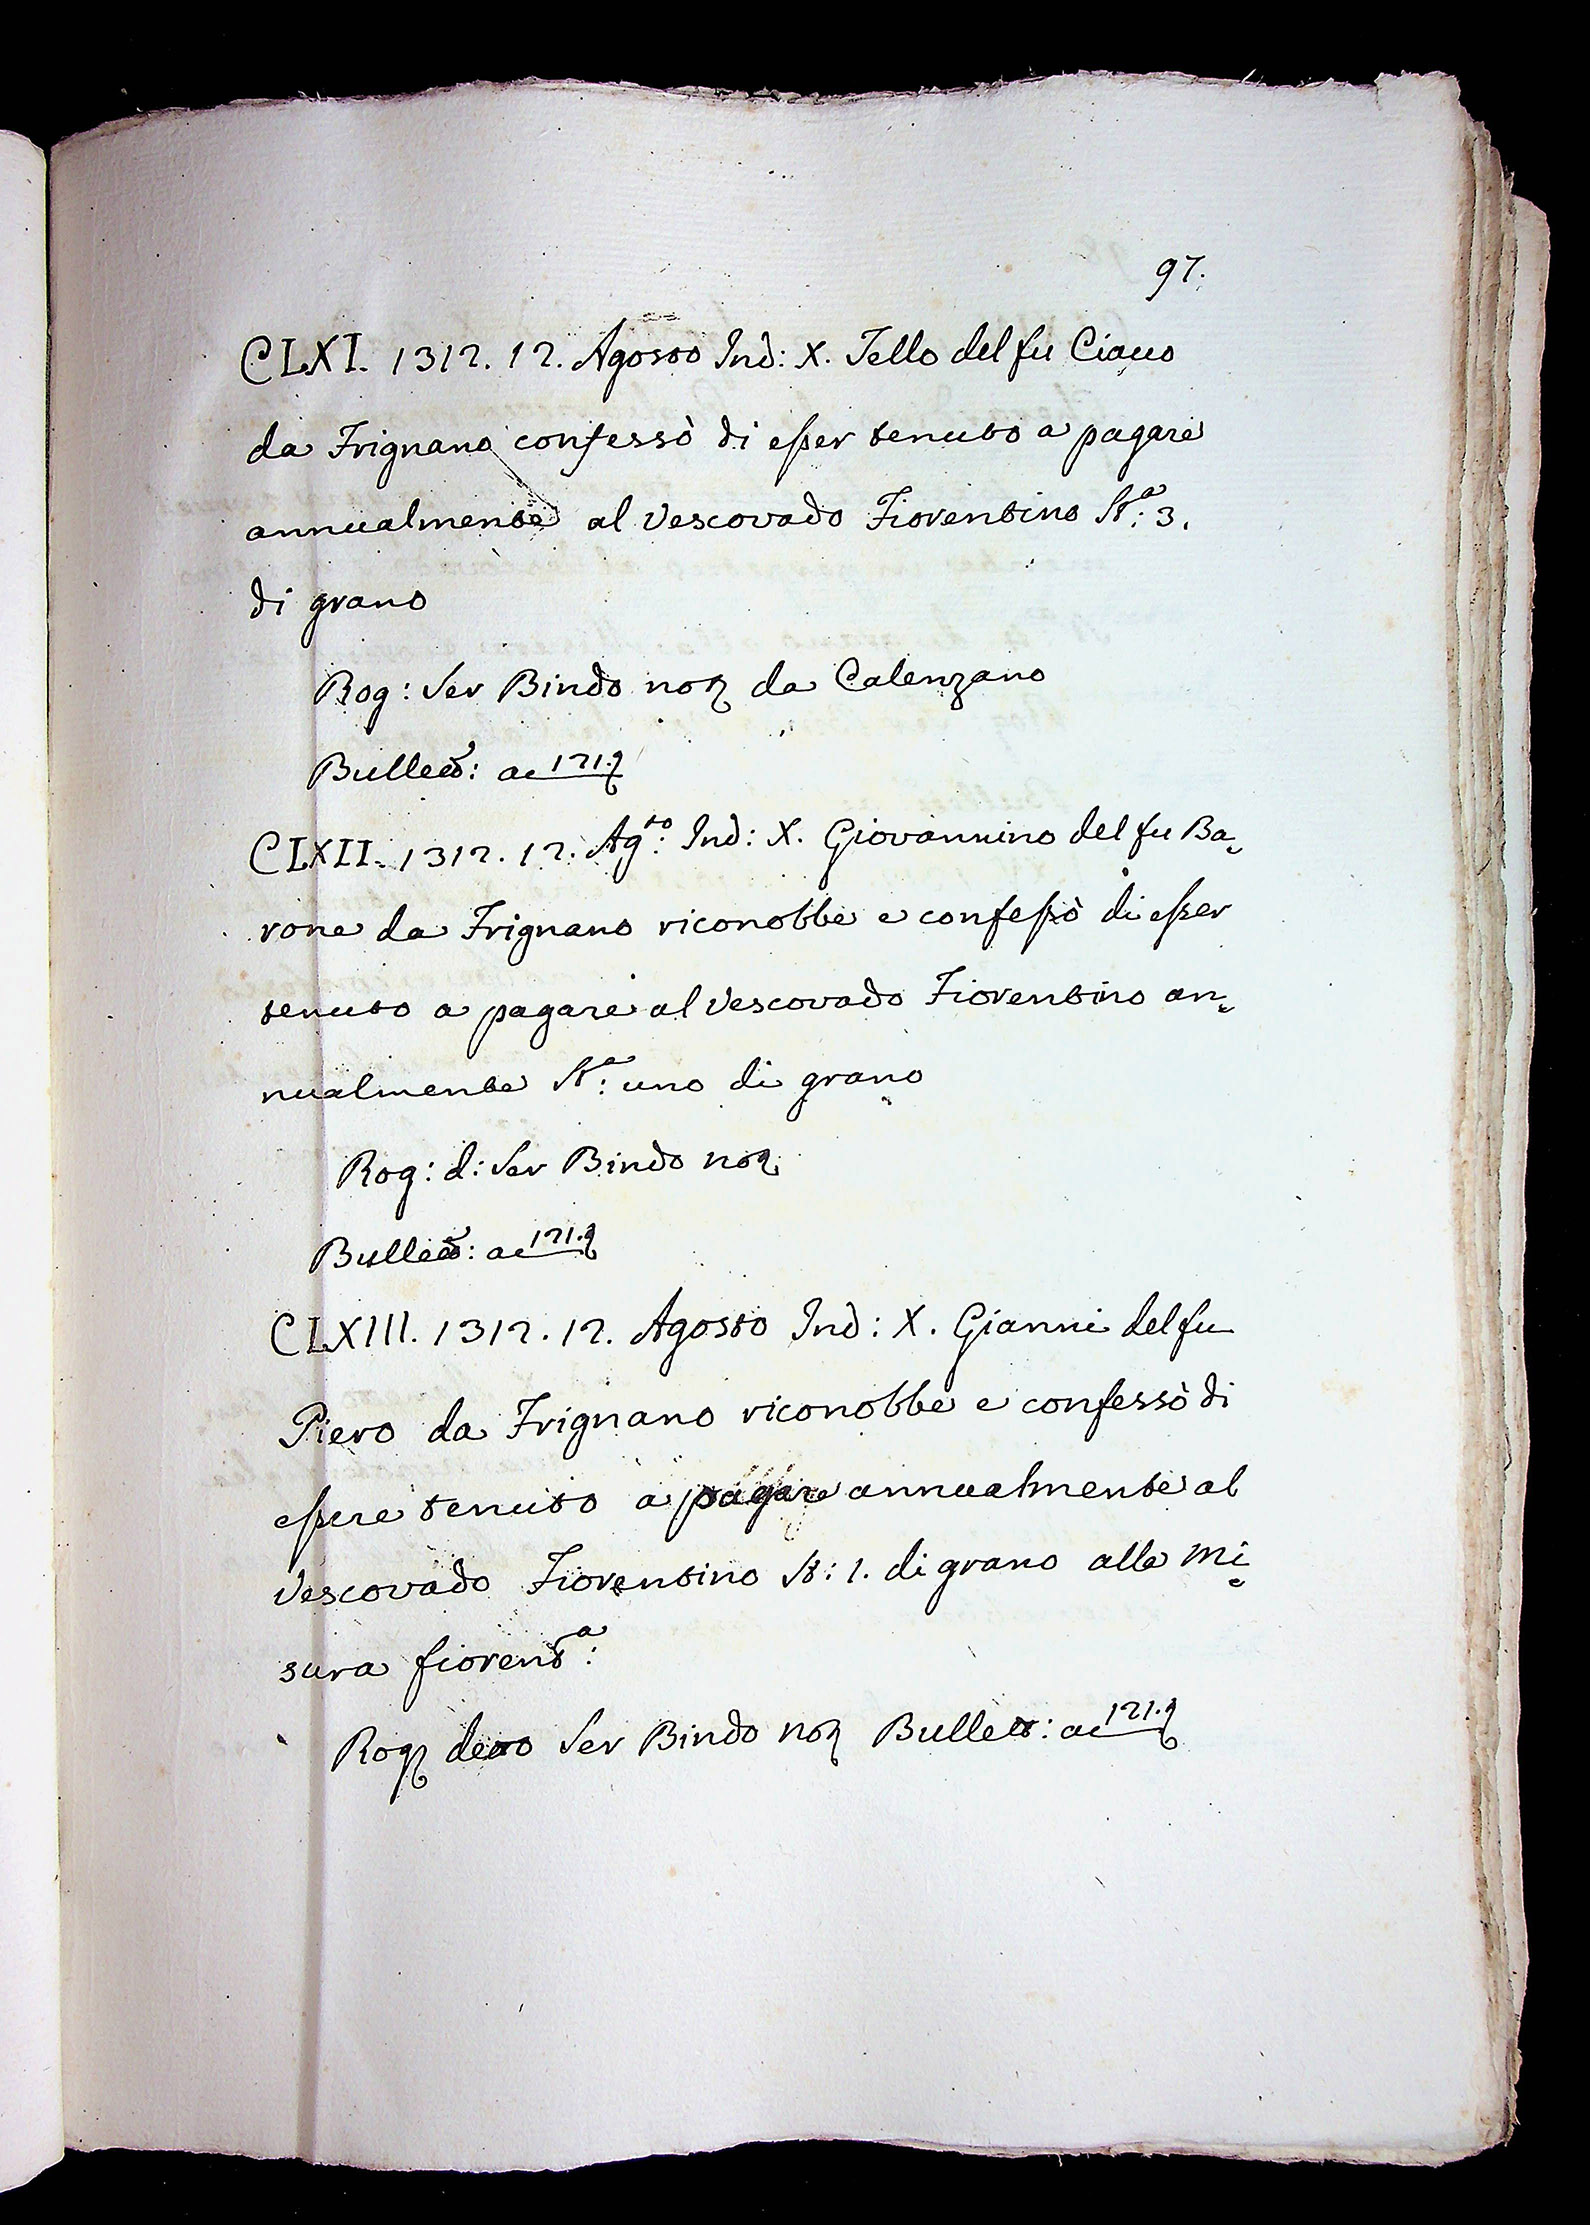 97.
CLXI. 1312. 12. Agosto Ind: X. Tello del fu Ciaccо
da Frignano confessò di esser tenuto a pagare
annualmente al Vescovado Fiorentino Sta: 3.
di grano
Rog: Ser Bindo not da Calenzano
Bullett: ac 121.
CLXII. 1312. 12. Agto: Ind: X. Giovannino del fu Ba-
rone da Frignano riconobbe e confessò di esser
tenuto a pagare al Vescovado Fiorentino an-
nualmente Sta: uno di grano
Rog: d: Ser Bindo not
Bullett: ac 121.
CLXIII. 1312. 12. Agosto Ind: X. Gianni del fu
Piero da Frignano riconobbe e confessò di
essere tenuto a pagare annualmente al
Vescovado Fiorentino St: 1. di grano alla mi-
sura fiorenta:
Rog detto Ser Bindo not Bullett: ac 121.